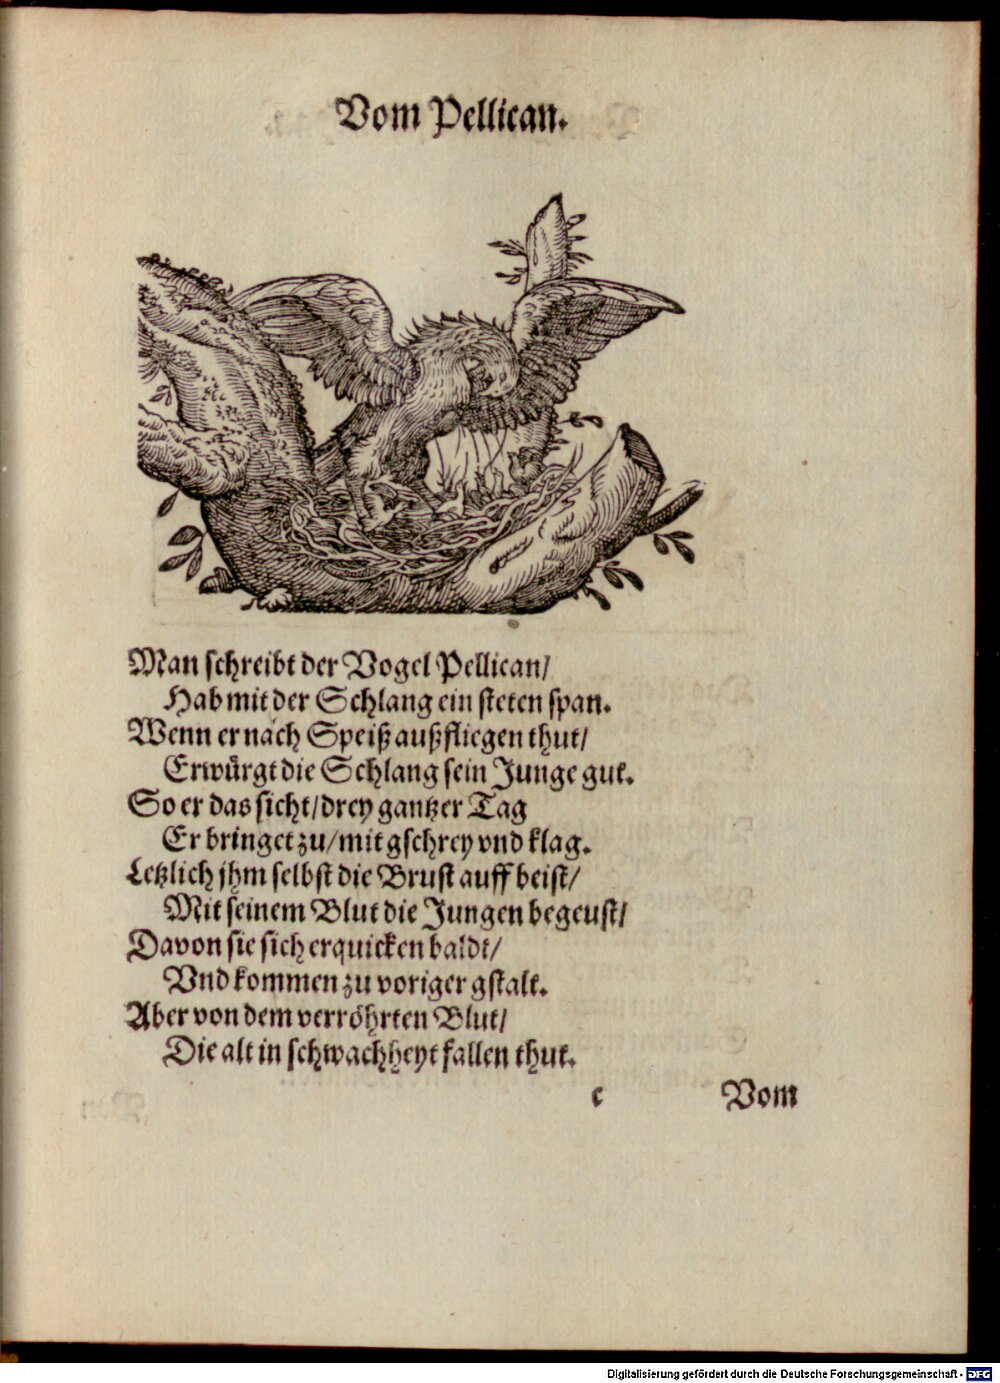 Vom Pellican.
Man schreibt der Vogel Pellican/
Hab mit der Schlang ein steten span.
Wenn er nach Speiß außfliegen thut/
Erwürgt die Schlang sein Junge gut.
So er das sicht/drey gantzer Tag
Er bringet zu/mit gschrey vnd klag.
Letzlich jhm selbst die Brust auff beist/
Mit seinem Blut die Jungen begeust/
Davon sie sich erquicken baldt/
Vnd kommen zu voriger gstalt.
Aber von dem verröhrten Blut/
Die alt in schwachheyt fallen thut.
c Vom
Digitalisierung gefördert durch die Deutsche Forschungsgemeinschaft - DFG